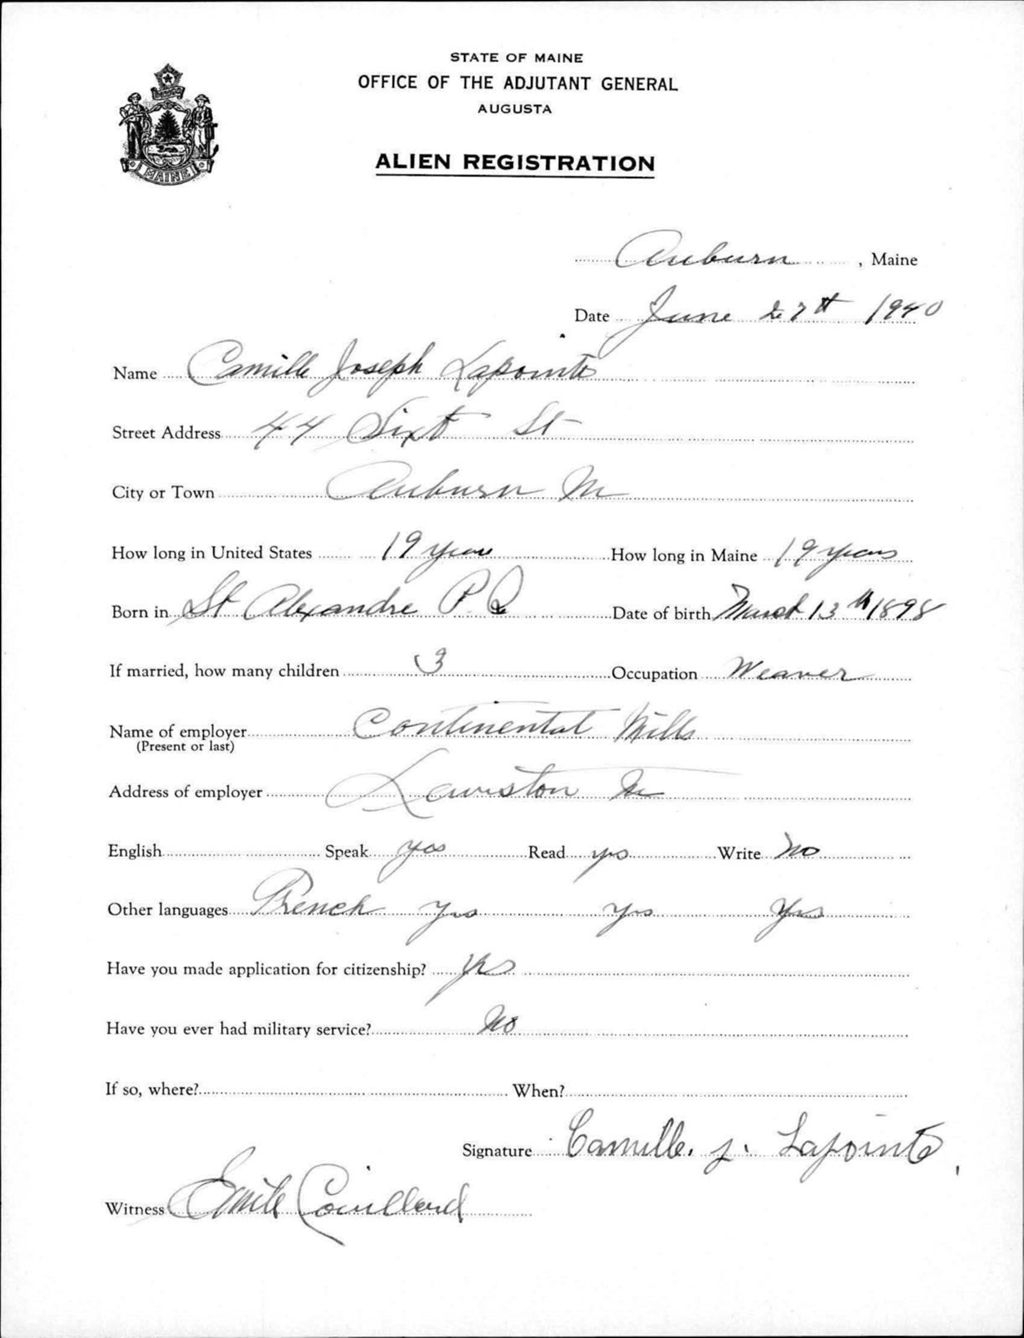 STATE OF MAINE
OFFICE OF THE ADJUTANT GENERAL
AUGUSTA
ALIEN REGISTRATION
MAINE
Auburn, Maine
Date June 27th 1940
Name Camille Joseph Lapointe
Street Address 44 Sixt St
City or Town Auburn Me
How long in United States 19 years How long in Maine 19 years
Born in St Alexandre P. Q Date of birth March 13th 1898
If married, how many children 3 Occupation Weaver
Name of employer Continental Mills
(Present or last)
Address of employer Lewiston Me
English Speak yes Read yes Write No
Other languages French yes yes yes
Have you made application for citizenship? yes
Have you ever had military service? No
If so, where? When?
Signature Camille. J. Lapointe
Witness Emile Couillard